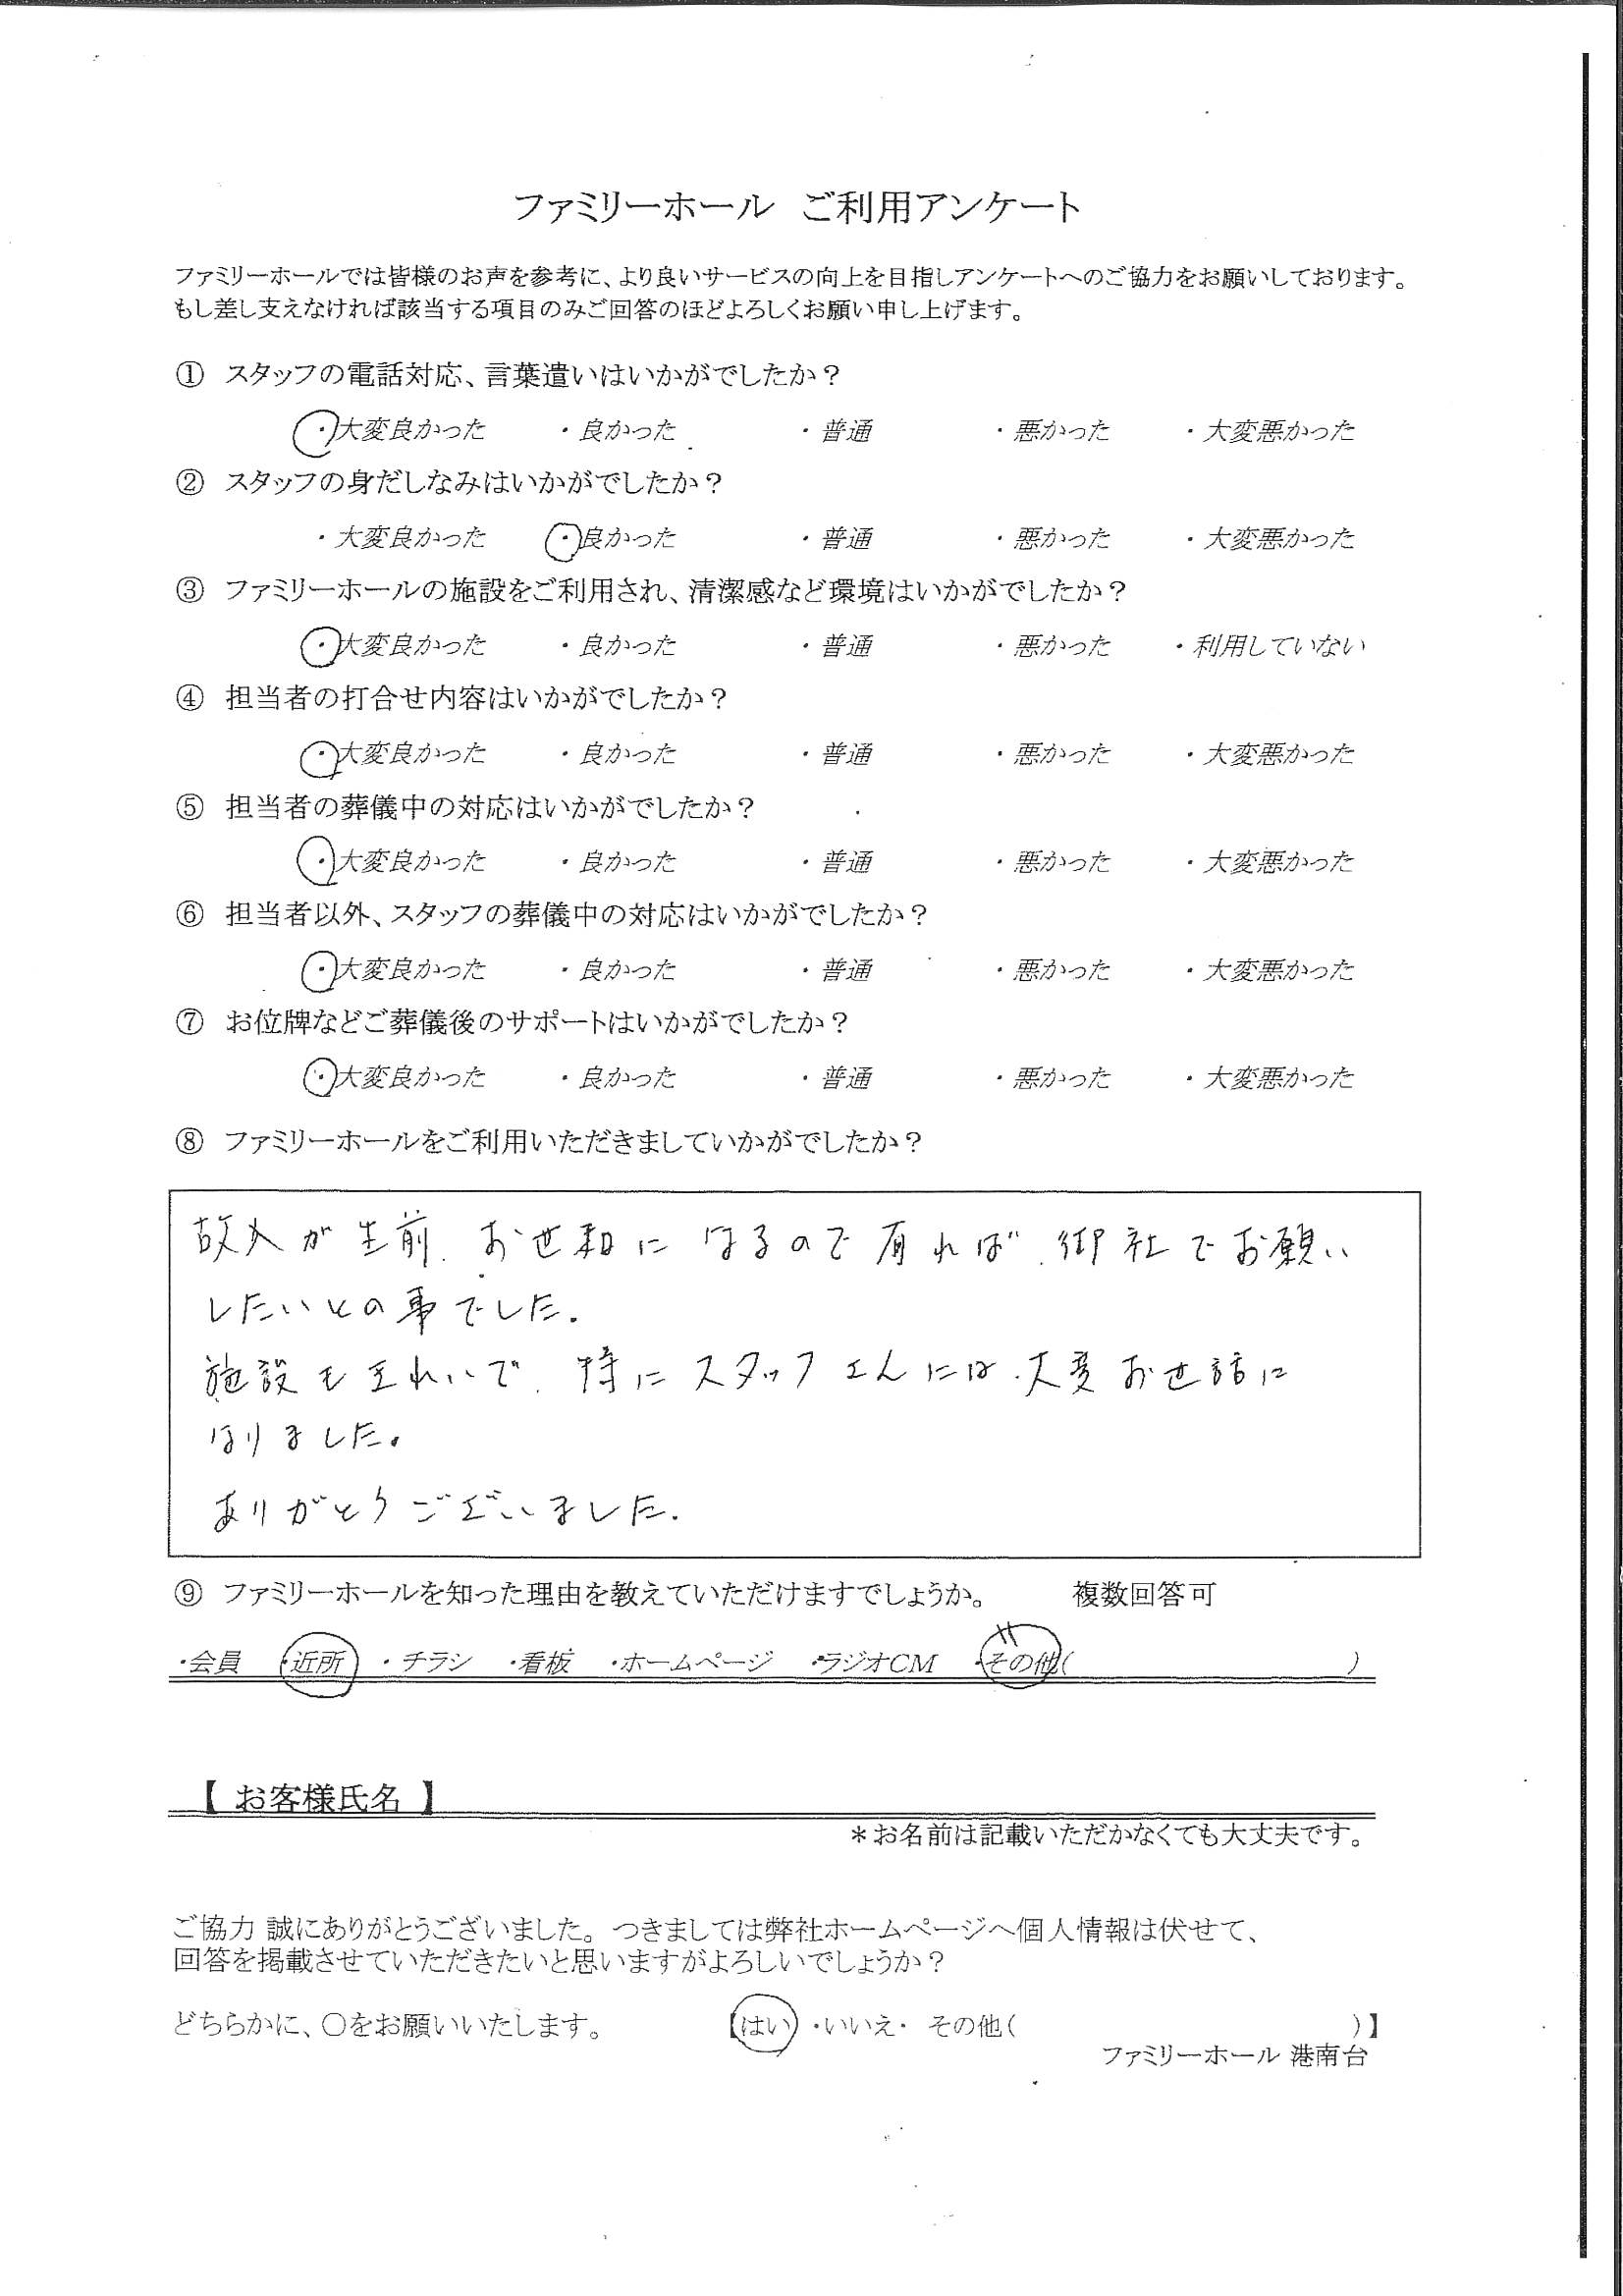 ファミリーホール ご利用アンケート
ファミリーホールでは皆様のお声を参考に、より良いサービスの向上を目指しアンケートへのご協力をお願いしております。
もし差し支えなければ該当する項目のみご回答のほどよろしくお願い申し上げます。
① スタッフの電話対応、言葉遣いはいかがでしたか？
・大変良かった ・良かった ・普通 ・悪かった ・大変悪かった
② スタッフの身だしなみはいかがでしたか？
・大変良かった ・良かった ・普通 ・悪かった ・大変悪かった
③ ファミリーホールの施設をご利用され、清潔感など環境はいかがでしたか？
・大変良かった ・良かった ・普通 ・悪かった ・利用していない
④ 担当者の打合せ内容はいかがでしたか？
・大変良かった ・良かった ・普通 ・悪かった ・大変悪かった
⑤ 担当者の葬儀中の対応はいかがでしたか？
・大変良かった ・良かった ・普通 ・悪かった ・大変悪かった
⑥ 担当者以外、スタッフの葬儀中の対応はいかがでしたか？
・大変良かった ・良かった ・普通 ・悪かった ・大変悪かった
⑦ お位牌などご葬儀後のサポートはいかがでしたか？
・大変良かった ・良かった ・普通 ・悪かった ・大変悪かった
⑧ ファミリーホールをご利用いただきましていかがでしたか？
故人が生前、お世和になるので有れば、御社でお願い
したいとの事でした。
施設もきれいで、特にスタッフさんには、大変お世話に
なりました。
ありがとうございました。
⑨ ファミリーホールを知った理由を教えていただけますでしょうか。 複数回答可
・会員 ・近所 ・チラシ ・看板 ・ホームページ ・ラジオCM ・その他( )
【 お客様氏名 】
＊お名前は記載いただかなくても大丈夫です。
ご協力 誠にありがとうございました。つきましては弊社ホームページへ個人情報は伏せて、
回答を掲載させていただきたいと思いますがよろしいでしょうか？
どちらかに、〇をお願いいたします。 【はい ・いいえ・ その他( )】
ファミリーホール 港南台